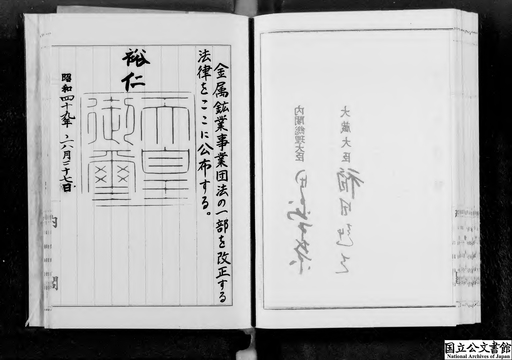 大蔵大臣
内閣総理大臣
金属鉱業事業団法の一部を改正する
法律をここに公布する。
裕仁
天皇
御璽
昭和四十九年六月二十七日
国立公文書館
National Archives of Japan